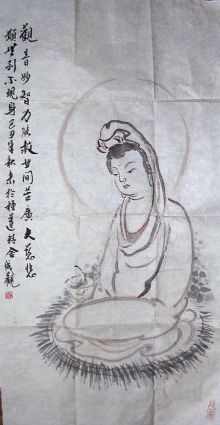 觀音妙智力能救世間苦廣大慈悲
願無剎不現身己丑年秋末於種蓮精舍成觀